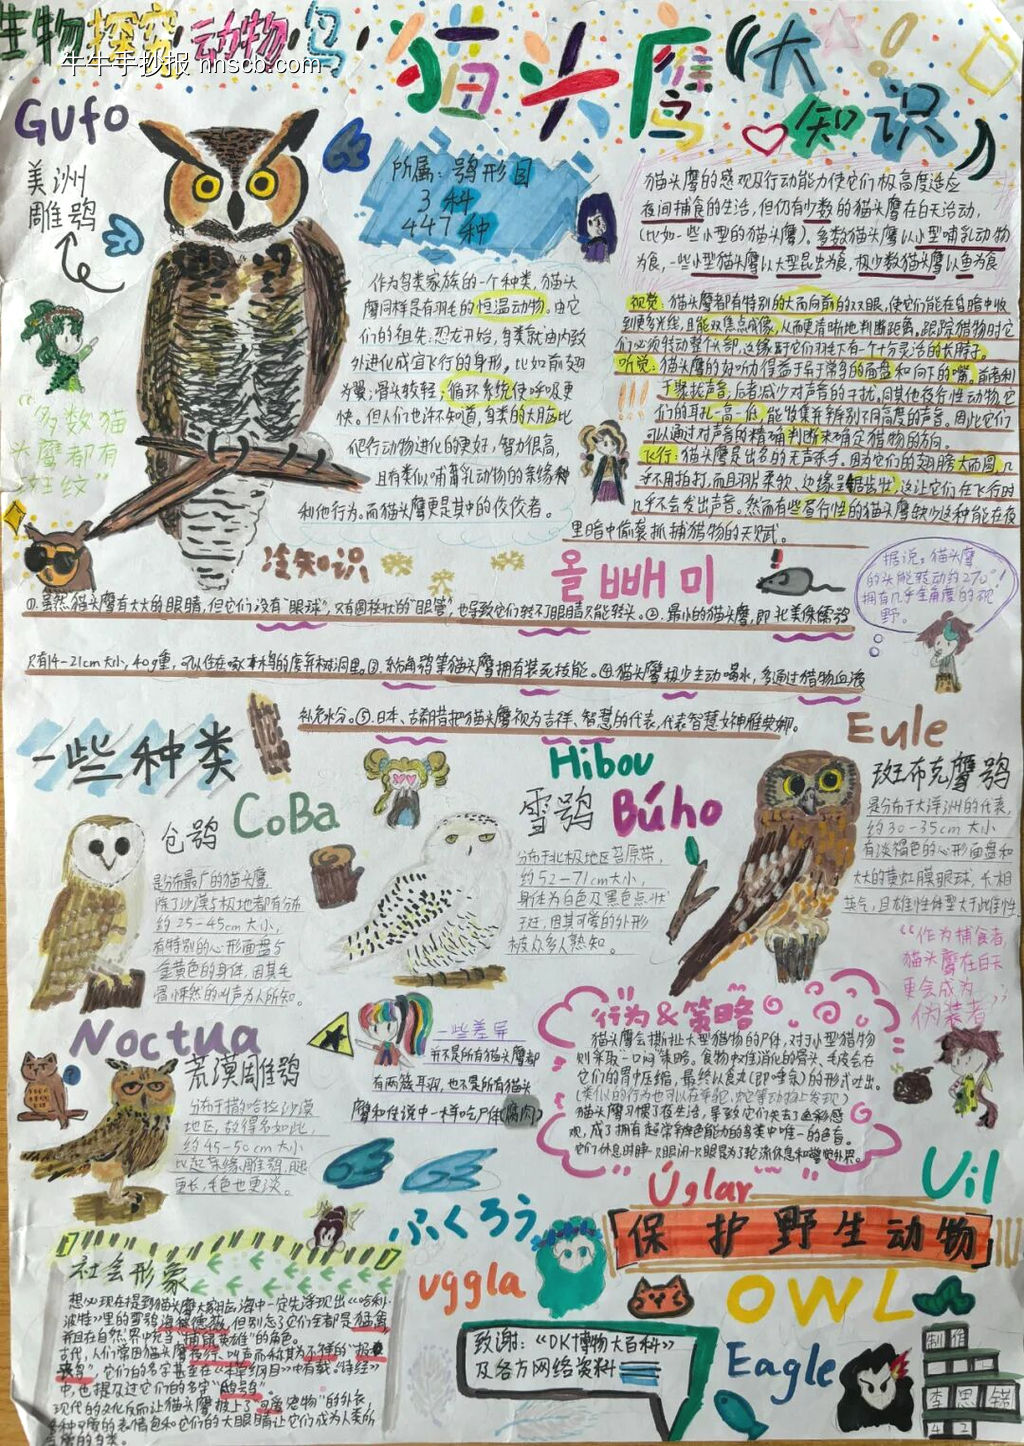 生物探究·动物·鸟
牛牛手抄报 nnscb.com
猫头鹰“大知识！”
Gufo
美洲
雕鸮
所属：鸮形目
3科
447种
猫头鹰的感观及行动能力使它们极高度适应
夜间捕食的生活，但仍有少数的猫头鹰在白天活动，
(比如一些小型的猫头鹰)。多数猫头鹰以小型哺乳动物
为食，一些小型猫头鹰以大型昆虫为食，极少数猫头鹰以鱼为食
作为鸟类家族的一个种类，猫头
鹰同样是有羽毛的恒温动物。由它
们的祖先：恐龙开始，鸟类就由内致
外进化成宜飞行的身形，比如前翅
为翼；骨头较轻；循环系统使呼吸更
快。但人们也许不知道，鸟类的大脑比
爬行动物进化的更好，智力很高，
且有类似哺乳动物的亲缘
和他行为。而猫头鹰更是其中的佼佼者。
“多数猫
头鹰都有
斑纹”
视觉：猫头鹰都有特别的大而向前的双眼，使它们能在昏暗中收
到更多光线，且能双焦点成像，从而更清晰地判断距离。跟踪猎物时它
们必须转动整个头部，这缘于它们羽毛下有一个十分灵活的长脖子。
听觉：猫头鹰的好听力得益于异于常鸟的面盘和向下的嘴。前者利
于聚拢声音，后者减少对声音的干扰，向其他夜行性动物，它
们的耳孔一高一低，能收集来辨别不同高度的声音。因此它们
可以通过对声音的精确判断来确定猎物的方向。
飞行：猫头鹰是出名的无声杀手。因为它们的翅膀大而圆，几
乎不用拍打，而且羽片柔软，边缘呈锯齿状，这让它们在飞行时
几乎不会发出声音。然而有些昼行性的猫头鹰缺少这种能在夜
里暗中偷袭抓捕猎物的天赋。
冷知识
올빼미
据说：猫头鹰
的头能转动约270°！
拥有几乎全角度的视
野。
①.虽然猫头鹰有大大的眼睛，但它们没有“眼球”，只有圆柱状的“眼管”，也导致它们转不了眼睛只能转头。②.最小的猫头鹰，即北美侏儒鸮
只有14-21cm大小，40g重，可以住在啄木鸟的废弃树洞里。③.纵角鸮等猫头鹰拥有装死技能。④.猫头鹰极少主动喝水，多通过猎物血液
补充水分。⑤.日本、古希腊把猫头鹰视为吉祥、智慧的代表，代表智慧女神雅典娜。
一些种类
Eule
Hibou
CoBa
仓鸮
是分布最广的猫头鹰，
除了沙漠与极地都有分布
约25-45cm大小，
有特别的心形面盘与
金黄色的身体，因其毛
骨悚然的叫声为人所知。
雪鸮
Búho
分布于北极地区苔原带，
约52-71cm大小，
身体为白色及黑色点状
斑，因其可爱的外形
被众多人熟知。
斑布克鹰鸮
是分布于大洋洲的代表，
约30-35cm大小
有淡褐色的心形面盘和
大大的黄虹膜眼球，
且雄性体型大于此雌性
“作为捕食者，
猫头鹰在白天
更会成为
伪装者”
Noctua
荒漠雕鸮
分布于撒哈拉沙漠
地区，故得名如此，
约45-50cm大小
比起亲缘雕鸮，腿
更长，毛色也更淡。
一些差异
并不是所有猫头鹰都
有两簇耳羽，也不是所有猫头
鹰和传说中一样吃尸体(腐肉)
行为&策略
猫头鹰会撕扯大型猎物的尸体，对于小型猎物
则采取一口闷策略。食物中难消化的骨头、毛皮会在
它们的胃中压缩，最终以食丸(即唾余)的形式吐出。
(类似的行为也可以在苍鹭、蛇等动物上发现)
猫头鹰习惯了夜生活，导致它们失去了色彩感
观，成了拥有超常辨色能力的鸟类中唯一的色盲。
它们休息时睁一只眼闭一只眼是为了轮流休息和警觉外界。
Úglar
Uil
ふくろう
uggla
保护野生动物
OWL
Eagle
社会形象
想必现在提到猫头鹰大家脑海中一定先浮现出《哈利·
波特》里的雪鸮海德薇，但别忘了它们全都是猛禽，
并且在自然界中充当“捕鼠英雄”的角色。
古代，人们常因猫头鹰叫声而称其为不祥的“报
丧鸟”，它们的名字甚至在《本草纲目》中有载，《诗经》
中，也提及过它们的名字“鸱鸮”。
现代的文化反而让猫头鹰披上了“可爱宠物”的外衣，
各种可爱的表情包和它们的大眼睛让它们成为人类所
喜爱的鸟类。
致谢：《DK博物大百科》
及各方网络资料
制作
李思锦
42